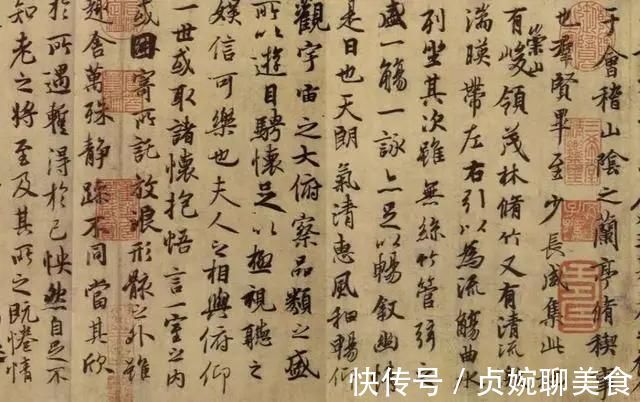 于會稽山陰之蘭亭脩稧
也羣賢畢至少長咸集此
有崇山峻領茂林脩竹又有清流
湍暎帶左右引以為流觴曲水
列坐其次雖無絲竹管弦之
盛一觴一詠亦足以暢敘幽情
是日也天朗氣清惠風和暢仰
觀宇宙之大俯察品類之盛
所以遊目騁懷足以極視聽之
娛信可樂也夫人之相與俯仰
一世或取諸懷抱悟言一室之內
或因寄所託放浪形骸之外雖
趣舍萬殊靜躁不同當其欣
於所遇暫得於己怏然自足不
知老之將至及其所之既惓情
快传号 / 贞婉聊美食